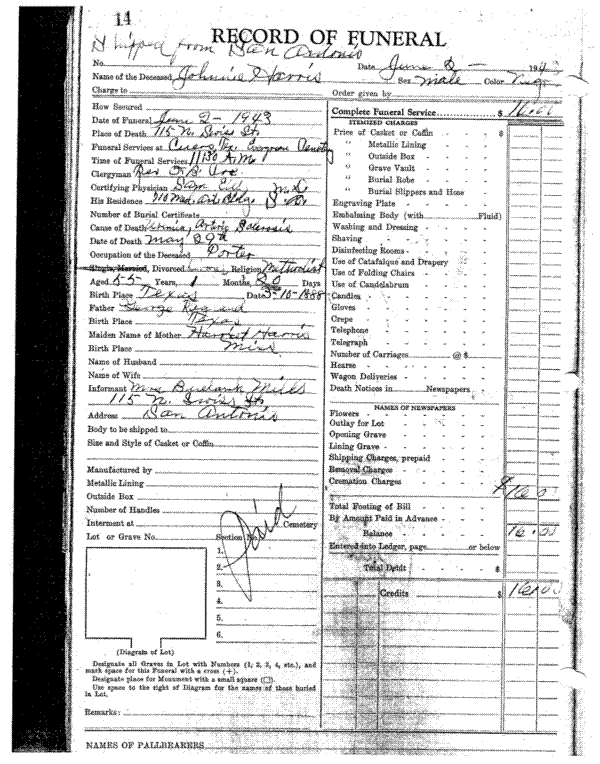 14
Shipped from San Antonio
RECORD OF FUNERAL
No. Date June 2 - 194
Name of the Deceased Johnnie Harris Sex male Color
Charge to Order given by
How Secured
Date of Funeral June 2 - 1943
Place of Death 115 N. Swiss St.
Funeral Services at Tex. Evergreen
Time of Funeral Services 11:30 A.M.
Clergyman Rev
Certifying Physician M.D.
His Residence 710 Med. Arts Bldg.
Number of Burial Certificate
Cause of Death
Date of Death May 29th
Occupation of the Deceased Porter
Single, Married, Divorced Religion Methodist
Aged 55 Years, 1 Months, 20 Days
Birth Place Texas Date
Father George
Birth Place Texas
Maiden Name of Mother Harriet Harris
Birth Place Miss
Name of Husband
Name of Wife
Informant Mrs
115 N. Swiss St
Address San Antonio
Body to be shipped to
Size and Style of Casket or Coffin
Manufactured by
Metallic Lining
Outside Box
Number of Handles
Interment at Cemetery
Lot or Grave No. Section No.
Paid
1.
2.
3.
4.
5.
6.
(Diagram of Lot)
Designate all Graves in Lot with Numbers (1, 2, 3, 4, etc.), and
mark space for this Funeral with a cross (+).
Designate place for Monument with a small square (□).
Use space to the right of Diagram for the names of those buried
in Lot.
Remarks:
NAMES OF PALLBEARERS
Complete Funeral Service $ 16.00
ITEMIZED CHARGES
Price of Casket or Coffin $
" Metallic Lining
" Outside Box
" Grave Vault
" Burial Robe
" Burial Slippers and Hose
Engraving Plate
Embalming Body (with Fluid)
Washing and Dressing
Shaving
Disinfecting Rooms
Use of Catafalque and Drapery
Use of Folding Chairs
Use of Candelabrum
Candles
Gloves
Crepe
Telephone
Telegraph
Number of Carriages @ $
Hearse
Wagon Deliveries
Death Notices in Newspapers
NAMES OF NEWSPAPERS
Flowers
Outlay for Lot
Opening Grave
Lining Grave
Shipping Charges, prepaid
Removal Charges
Cremation Charges
Total Footing of Bill
By Amount Paid in Advance
Balance 16.00
Entered into Ledger, page or below
Total Debit $
Credits $ 16.00